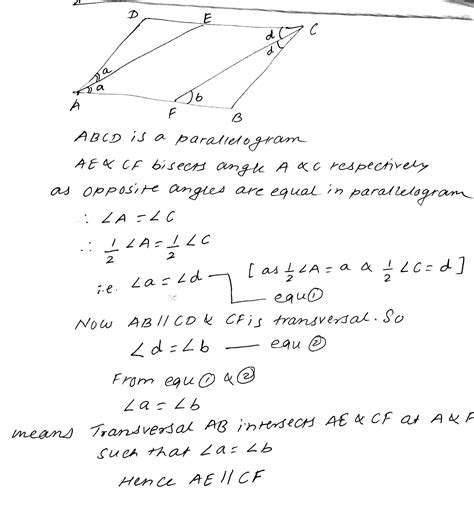 D
E
C
d
d
a
a
b
A
F
B
ABCD is a parallelogram
AE & CF bisects angle A & C respectively
as opposite angles are equal in parallelogram
∴ ∠A = ∠C
∴ 1/2 ∠A = 1/2 ∠C
i.e. ∠a = ∠d [as 1/2 ∠A = a & 1/2 ∠C = d]
equ ①
Now AB // CD & CF is transversal. So
∠d = ∠b — equ ②
From equ ① & ②
∠a = ∠b
means Transversal AB intersects AE & CF at A & F
such that ∠a = ∠b
Hence AE // CF